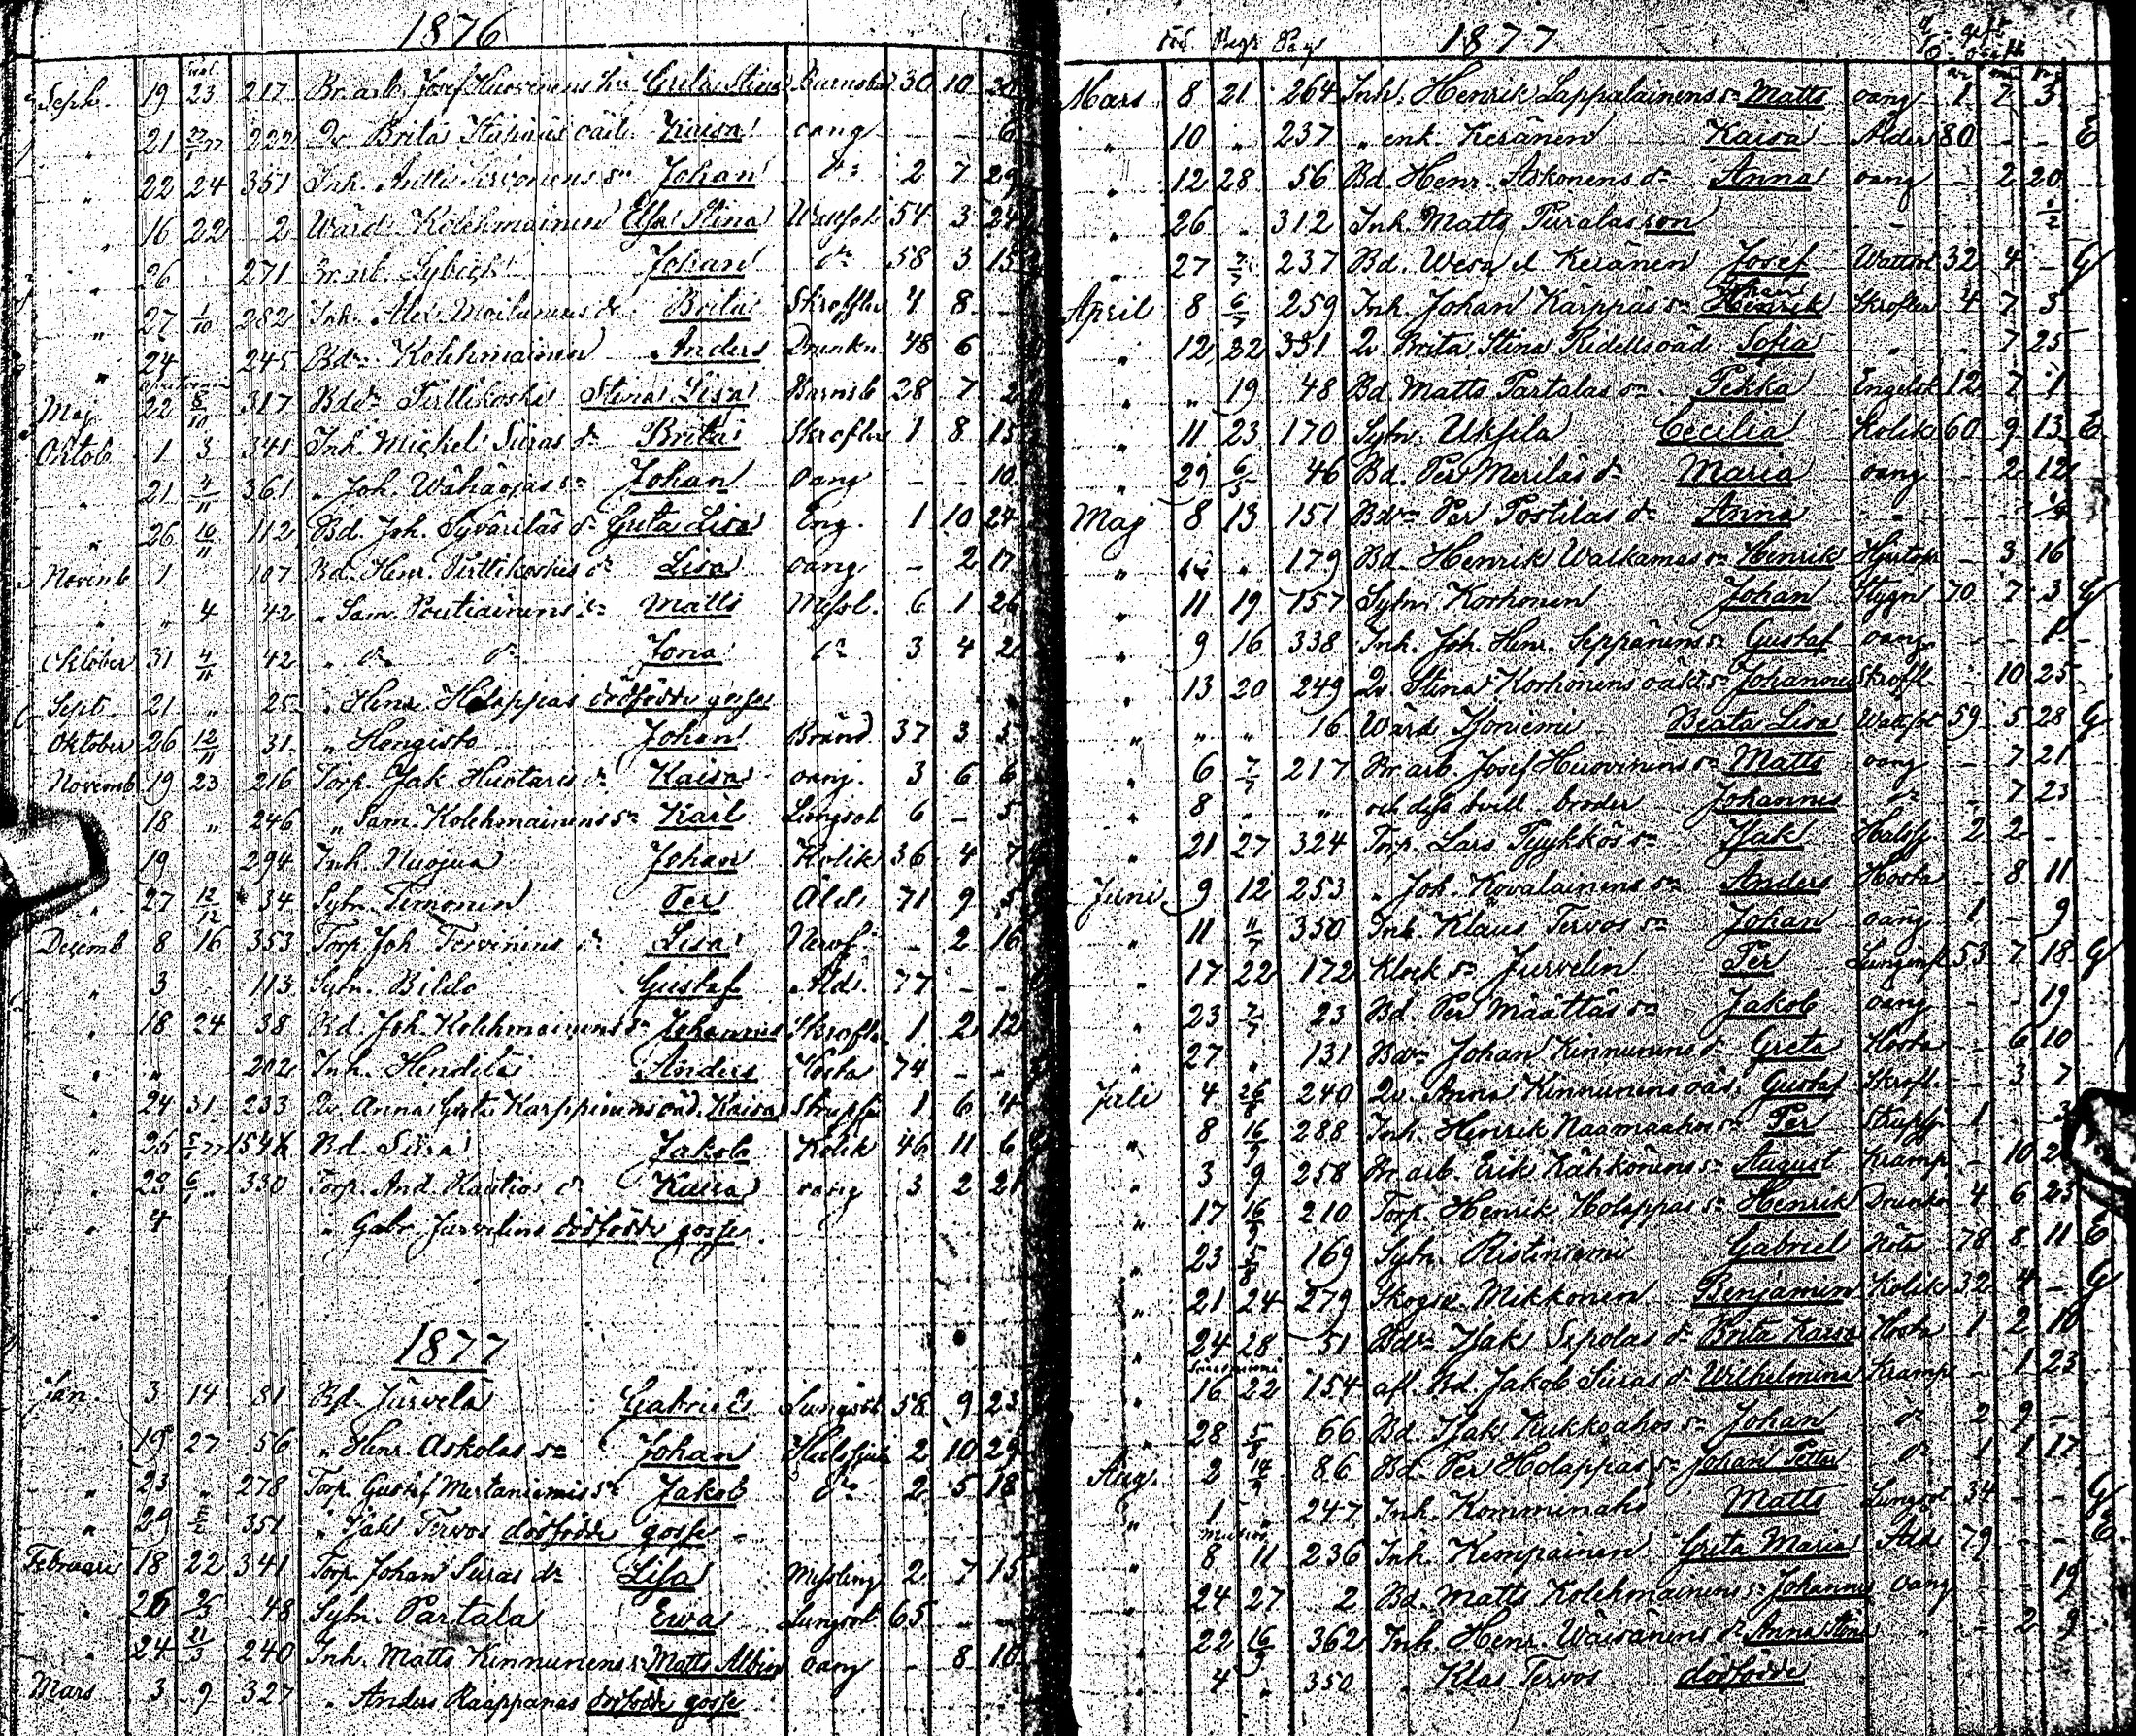 1876
Septr. 19 23 217 Br. arb. Josef Huovinens hu Greta Stina Barnsbd 30 10 20
" 21 222 Qv Brita oäkt. Kaisa oang 6
" 22 24 351 Inh. Antti Tervonens sn Johan do 2 7 29
" 16 22 2 Wärd. Kolehmainen Elsa Stina Wattsot 54 3 24
" 26 271 Br. arb. Lybeck Johan do 58 3 15
" 27 1/10 282 Inh. Alex. Moilanens dr Brita Skrofler 4 8 -
" 24 245 Bdr Kolehmainen Anders Drunkn 48 6
Maj 22 8/10 317 Bdr Pirttikoski Stina Lisa Barnsb 28 7 2
Oktob 1 3 341 Inh. Michel Suras dr Brita Skrofler 1 8 15
" 21 4/11 361 " Joh. Wähäojas sn Johan oang - - 10
" 26 10/11 112 Bd. Joh. Syvärilas dr Greta Lisa Eng. 1 10 24
Novemb 1 107 Bd. Henr. Pirttikoskis dr Lisa oang - 2 17
" " 4 42 " Sam. Poutiainens sn Matts Messl. 6 1 26
Oktober 31 4/11 42 " do do Jona do 3 4 2
Sept. 21 " 25 " Henr. Holappas dödfödde gosse
Oktober 26 12/11 31 " Hongisto Johan Bränd 37 3 5
Novemb 19 23 216 Torp. Jak. Huotaris dr Kaisa oang. 3 6 6
" 18 " 246 " Sam. Kolehmainens sn Karl Lungsot 6 - 5
" 19 294 Inh. Nuojua Johan Kolik 36 4 7
" 27 12/12 34 Sytn. Timonen Per Åld. 71 9 5
Decemb 8 16 353 Torp. Joh. Tervonens dr Lisa Nervf. - 2 16
" 3 113 Sytn. Bildo Gustaf Åld. 77 - -
" 18 24 38 Bd. Joh. Kolehmainens sn Johannes Skrofler 1 2 12
" " 202 Inh. Hendilä Anders Hosta 74 - -
" 24 31 233 Qv. Anna Greta Karppinens oäd. Kaisa Strupsj 1 6 4
" 25 154 Bd. Sura Jakob Kolik 46 11 6
" 29 6/1 330 Torp. And. Kautios dr Kaisa oang 3 2 21
" 4 " Gabr. Jurvelins dödfödde gosse
1877
Jan. 3 14 81 Bd. Jurvela Gabriel Lungsot 58 9 23
19 27 56 " Henr. Askolas sn Johan Halssjuk 2 10 29
" 23 " 278 Torp. Gustaf Mustaniemis sn Jakob do 2 5 18
" 29 351 " Isak Tervos dödfödde gosse -
Februari 18 22 341 Torp. Johan Suras dr Lisa Messling 2 7 15
" 26 48 Sytn. Partala Ewa Lungsot 65 - -
" 24 21/3 240 Inh. Matts Kinnunens s. Matts Albin oang - 8 10
Mars 3 9 327 " Anders Kaappanas dödfödde gosse
död. Begr. Pag. 1877
Mars 8 21 264 Inh. Henrik Lappalainens sn Matts oang 1 7 3
" 10 " 237 " enk. Keränen Kaisa Ålder 80 - - E
" 12 28 56 Bd. Henr. Askonens dr Anna oang - 2 20
" 26 " 312 Inh. Matts Puralas son - - 1/2
" 27 237 Bd. Keränen Josef Wattsot 32 4 - G
April 8 6/5 259 Inh. Johan Karppas sn Henrik Johan Skrofler 4 7 3
" 12 22 331 Qv. Brita Stina Ridells oäd. Sofia " - 7 25
" " 19 48 Bd. Matts Partalas sn. Pekka Engelsk 12 7 1
" 11 23 170 Sytn. Ukkila Cecilia Kolik 60 9 13 E
" 29 6/5 46 Bd. Per Meriläs dr Maria oang - 2 12
Maj 8 13 151 Bdn Per Postilas dr Anna " - -
" " 179 Bd. Henrik Walkamas sn Henrik - 3 16
" 11 19 157 Sytn Korhonen Johan Stygn 70 7 3 G
" 9 16 338 Inh. Joh. Henr. Seppänens sn Gustaf oang - - 1
" 13 20 249 Qv. Stina Korhonens oäkt. sn Johannes Skrofl. - 10 25
" " " 16 Wärd. Koniemi Beata Lisa Wattsot 59 5 28 G
" 6 217 Br. arb. Josef Huovinens sn Matts oang - 7 21
" 8 " " och dess tvill. broder Johannes do " 7 23
" 21 27 324 Torp. Lars Pyykkös sn Isak Halssj. 2 2 -
Juni 9 12 253 " Joh. Kovalainens sn Anders Hosta - 8 11
" 11 11/7 350 Inh. Klaus Tervos sn Johan oang 1 - 9
" 17 22 172 Klock sn Jurvelin Per Lunginf. 53 7 18 G
" 23 23 Bd. Per Määttäs sn Jakob oang - - 19
" 27 " 131 Bdn Johan Kinnunens dr Greta Hosta - 6 10
Juli 4 26/8 240 Qv. Anna Kinnunens oäs. Gustaf Skrofl. - 3 7
" 8 16/9 288 Inh. Henrik Naamaahos sn Per Strupsj. 1 3
" 3 9 258 Br. arb. Erik Kähkönens sn August Kramp - 10 2
" 17 16/9 210 Torp. Henrik Holappas sn Henrik Drunkn 4 6 23
" 23 5/8 169 Sytn. Ristiniemi Gabriel Röta 78 8 11 E
" 21 24 279 Skogsv. Mikkonen Benjamin Kolik 32 4 - G
" 24 28 51 Bdn Isak Sepolas dr Brita Kaisa Hosta 1 2 10
" 16 22 154 afl. Bd. Jakob Suras dr Wilhelmina Kramp - 1 23
" 28 5/8 66 Bd. Isak Kukkoahos sn Johan do 2 9 -
Aug. 2 14/9 86 Bd. Per Holappas sn Johan Petter do 1 1 17
" 1 " 247 Inh. Komminaho Matts Lungsot 34 - - G
" 8 11 236 Inh. Kempainen Greta Maria Åld. 79 - - E
" 24 27 2 Bd. Matts Kolehmainens sn Johannes oang - - 19
" 22 16/9 362 Inh. Henr. Wäisänens dr Anna Stina " - 2 9
" 4 " 350 " Klas Tervos dödfödde